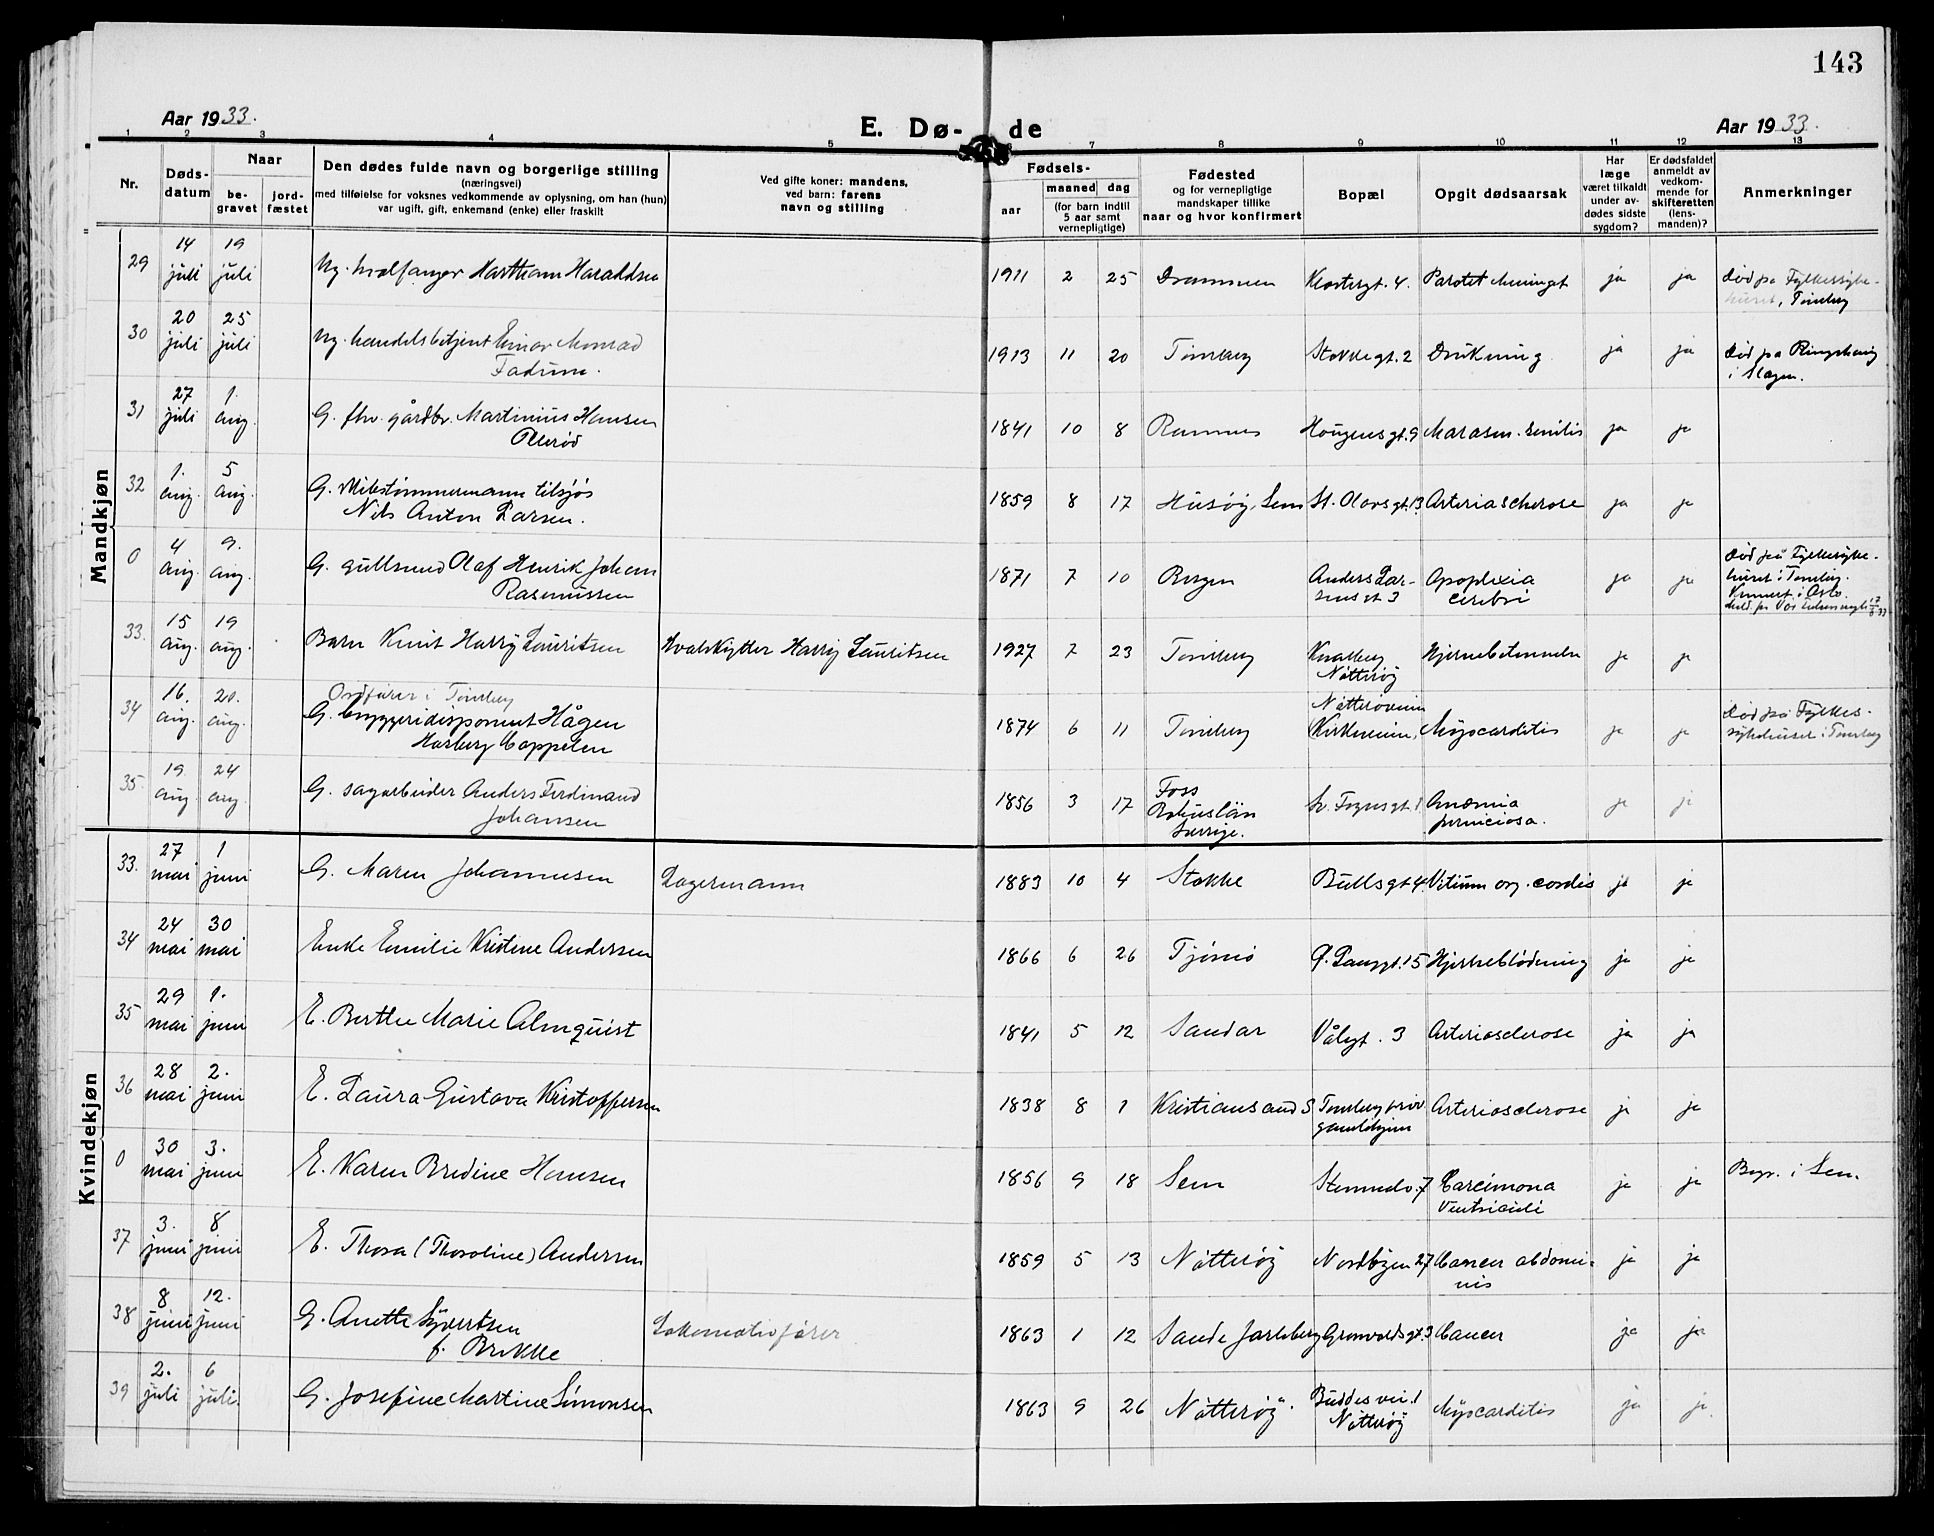 143
Aar 1933.
E. Dø- de
Aar 1933.
1 2 3 4 5 6 7 8 9 10 11 12 13
Nr.
Døds-
datum
Naar
be-
gravet
jord-
fæstet
Den dødes fulde navn og borgerlige stilling
(næringsvei)
med tilføielse for voksnes vedkommende av oplysning, om han (hun)
var ugift, gift, enkemand (enke) eller fraskilt
Ved gifte koner: mandens,
ved barn: farens
navn og stilling
Fødsels-
aar
maaned dag
(for barn indtil
5 aar samt
vernepligtige)
Fødested
og for vernepligtige
mandskaper tillike
naar og hvor konfirmert
Bopæl
Opgit dødsaarsak
Har
læge
været tilkaldt
under av-
dødes sidste
sygdom?
Er dødsfaldet
anmeldt av
vedkom-
mende for
skifteretten
(lens-
manden)?
Anmerkninger
Mandkjøn
29 14 juli 19 juli Ug. hvalfanger Hartham Haraldsen 1911 2 25 Drammen Klostergt. 4. Parotet Meninget ja ja Død på Fylkessyke-
huset, Tønsberg
30 20 juli 25 juli Ug. handelsbetjent Einar Monrad
Fadum. 1913 11 20 Tønsberg Stokkegt. 2 Drukning ja ja Død på Ringshaug
i Slagen.
31 27 juli 1. aug. G. fhv. gårdbr. Martinius Hansen
Ollerød 1841 10 8 Ramnes Haugensgt. 9 Marasm. senilis ja ja
32 1. aug. 5 aug. G. Mibstømmermann tilsjøs
Nils Anton Larsen. 1859 8 17 Husøy, Sem St. Olavsgt. 13 Arteriascherose ja ja
0 4 aug. 9. aug. G. gullsmed Olaf Henrik Johan
Rasmussen 1871 7 10 Bergen Anders Lar-
sensgt 3 Apoplexia
cerebri ja ja Død på Fylkessyke-
huset i Tønsberg.
Kremert i Oslo.
33. 15 aug. 19 aug. Barn Knut Harry Lauritsen Hvalskytter Harry Lauritsen 1927 7 23 Tønsberg Knarberg
Nøtterøy Hjernebetennelse ja ja
34 16. aug. 20. aug. Ordfører i Tønsberg
G. bryggeridisponent Hågen
Harberg Cappelen 1874 6 11 Tønsberg Nøtterøveien
Kirkeveien, Myocarditis ja ja Død på Fylkes-
sykehuset i Tønsberg
35. 19. aug 24 aug G. sagarbeider Anders Ferdinand
Johansen 1856 3 17 Foss
Bohuslän
Sverige. Sv. Foynsgt. 1 Anæmia
perniciosa. ja ja
Kvindekjøn
33. 27 mai 1 juni G. Maren Johannesen Lagermann 1883 10 4 Stokke Bullsgt 4 Vitium org. cordis ja ja
34 24 mai 30 mai Enke Emilie Kristine Andersen 1866 6 26 Tjømø Ø. Langgt. 15 Hjerneblødning ja ja
35 29 mai 1. juni E. Berthe Marie Almquist 1841 5 12 Sandar Vålegt. 3 Arteriosclerose ja ja
36 28 mai 2. juni E. Laura Gustava Kristoffersen 1838 8 1 Kristiansand S Tønsberg priv
gamlehjem Arteriosclerose ja ja
0 30 mai 3. juni E. Karen Bredine Hansen 1856 9 18 Sem Stenmalv. 7 Carcimona
Ventriculi ja ja Begr. i Sem.
37 3. juni 8 juni E. Thora (Thoraline) Andersen 1859 5 13 Nøtterøy Nordbyen 27 Cancer abdomi-
nis ja ja
38 8 juni 12. juni G. Anette Syvertsen
f. Brekke Lokomotivfører 1863 1 12 Sande Jarlsberg Grønvoldsgt. 3 Cancer ja ja
39 2. juli 6 juli. G. Josefine Martine Simonsen 1863 9 26 Nøtterøy. Buddesvei. 1
Nøtterøy Myocarditis ja ja.